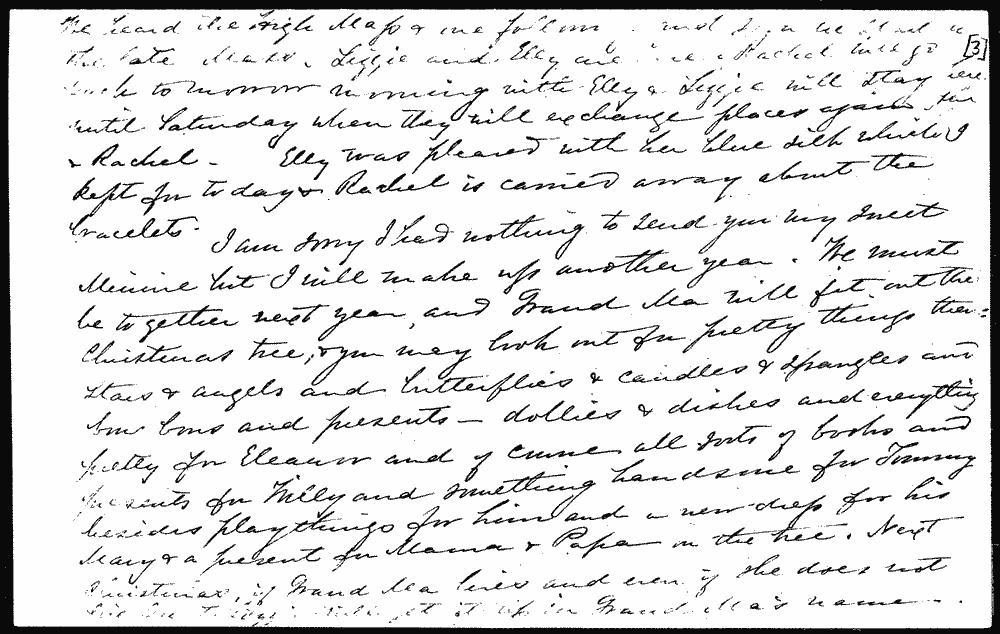 We heard the High Mass & we follow and
[3]
the late Mass. Lizzie and Elly are Rachel will go
to morrow morning with Elly & Lizzie will stay here
until Saturday when they will exchange places again
& Rachel - Elly was pleased with her blue silk which I
kept for to day & Rachel is carried away about the
bracelets. I am sorry I had nothing to send you my sweet
Minnie but I will make up another year. We must
be together next year, and Grand Ma will fit out the
Christmas tree, & you may look out for pretty things then =
stars & angels and butterflies & candles & spangles and
bon bons and presents - dollies & dishes and everything
pretty for Eleanor and of course all sorts of books and
presents for Willy and something handsome for Tommy
besides playthings for him and a new dress for his
Mary & a present for Mama & Papa on the tree. Next
Christmas, if Grand Ma lives and even if she does not
get it up in Grand Ma's name.